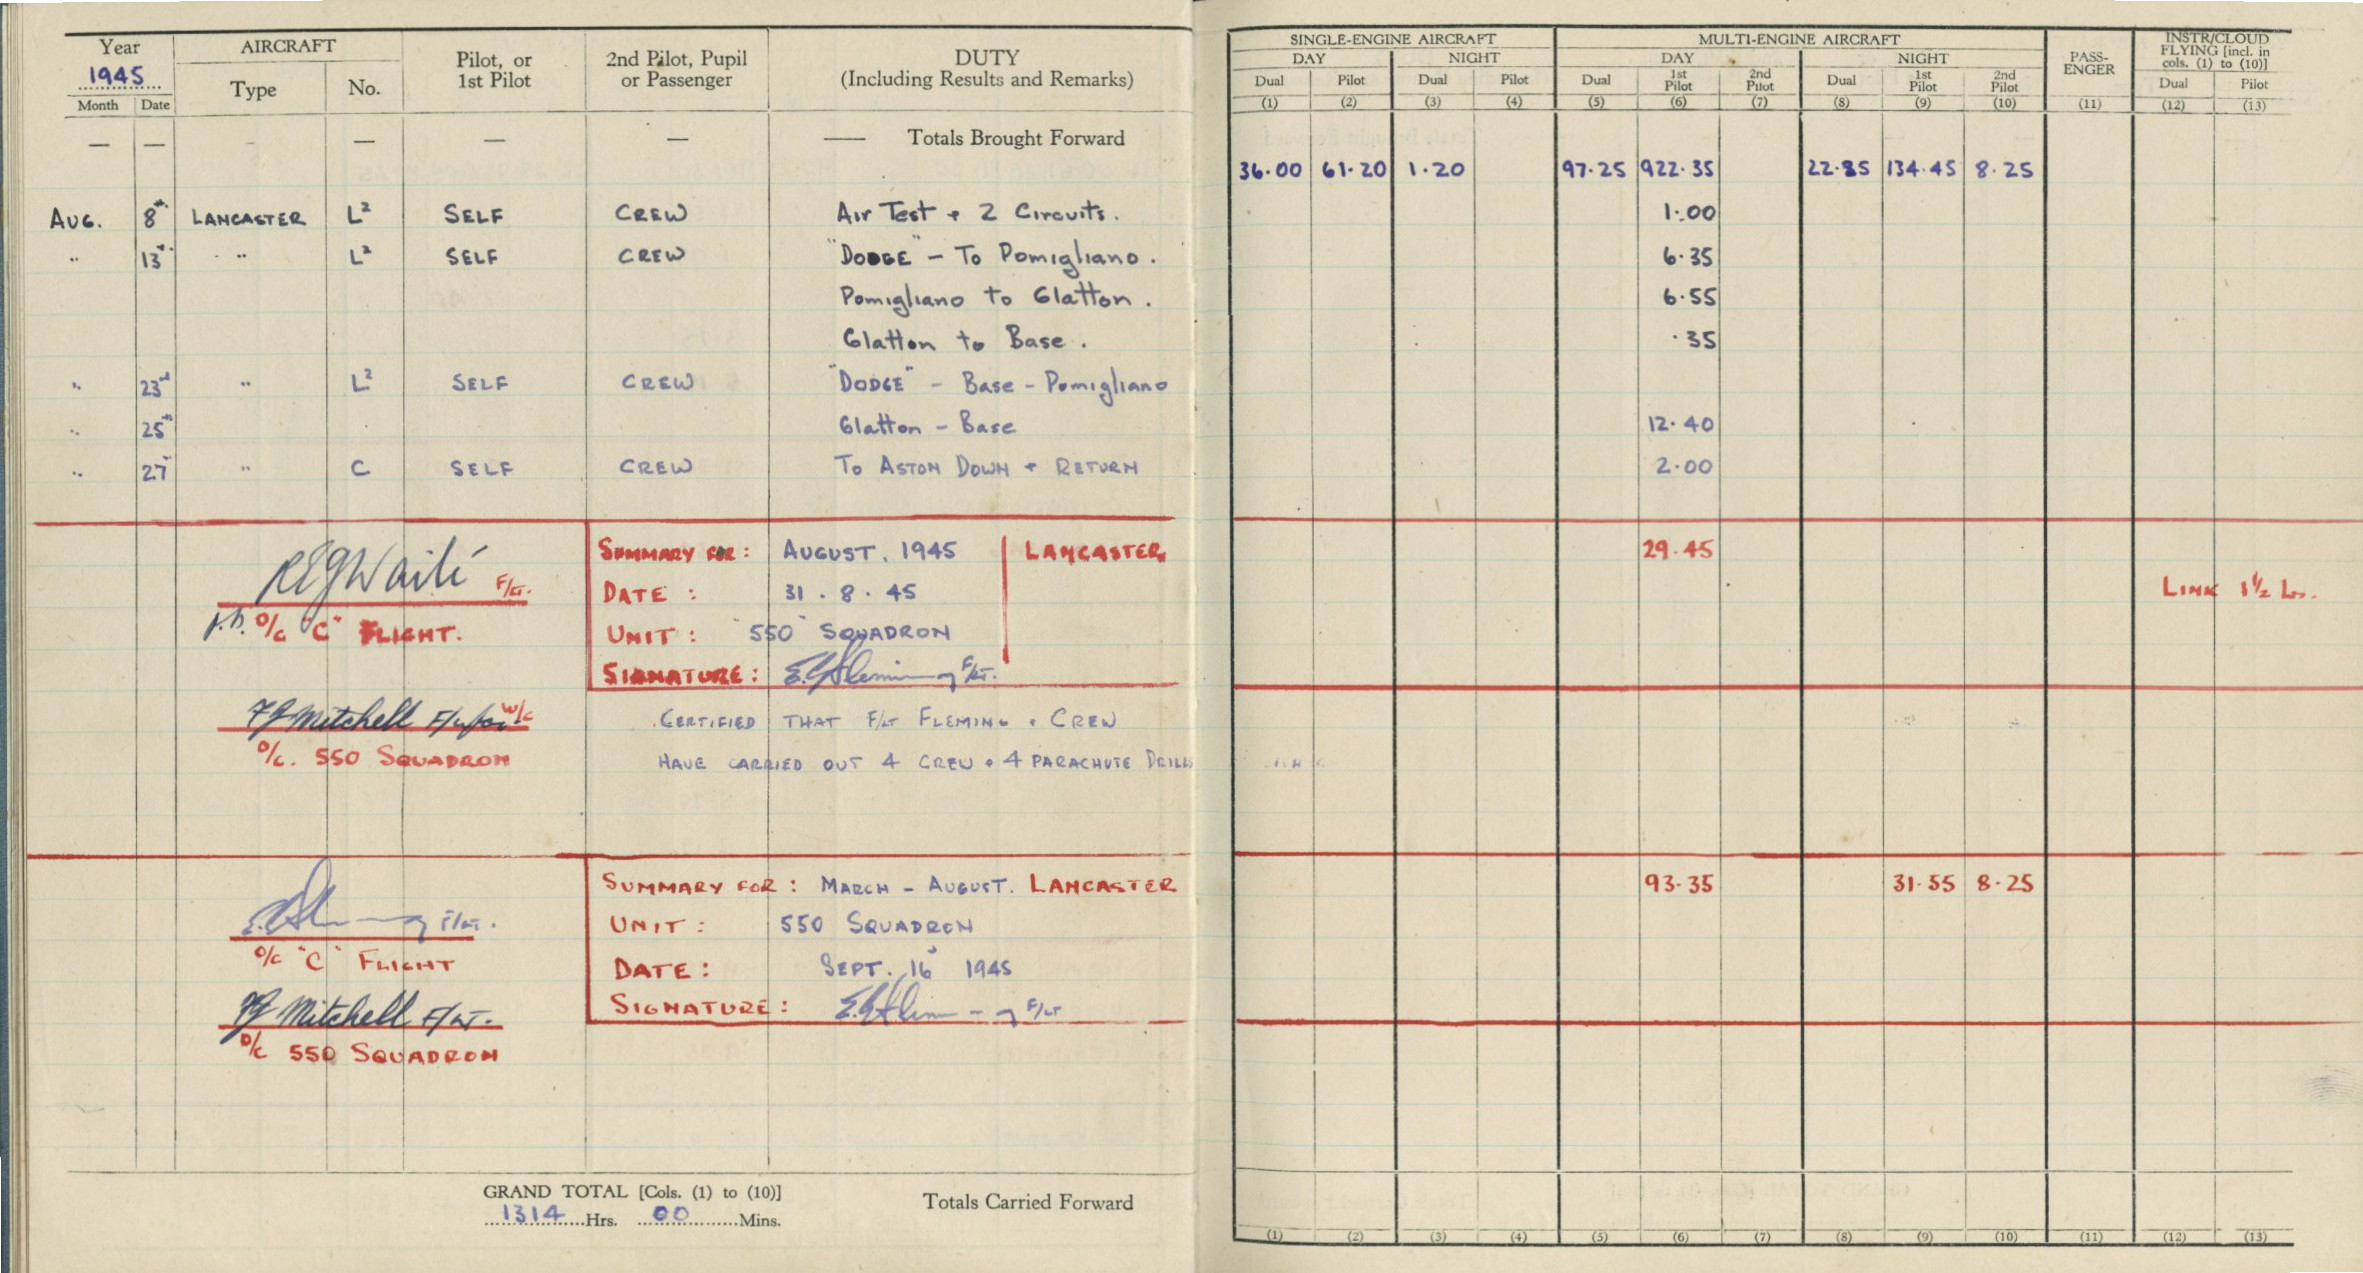 Year AIRCRAFT Pilot, or 1st Pilot 2nd Pilot, Pupil or Passenger DUTY (Including Results and Remarks) SINGLE-ENGINE AIRCRAFT MULTI-ENGINE AIRCRAFT PASS-ENGER INSTR/CLOUD FLYING [incl. in cols. (1) to (10)]
1945 Type No. DAY NIGHT DAY NIGHT
Month Date Dual Pilot Dual Pilot Dual 1st Pilot 2nd Pilot Dual 1st Pilot 2nd Pilot Dual Pilot
(1) (2) (3) (4) (5) (6) (7) (8) (9) (10) (11) (12) (13)
— — - — — — — Totals Brought Forward
36.00 61.20 1.20 97.25 922.35 134.45 8.25
AUG. 8th LANCASTER L² SELF CREW Air Test + 2 Circuits. 1.00
" 13th " L² SELF CREW "DODGE" - To Pomigliano. 6.35
Pomigliano to Glatton. 6.55
Glatton to Base. .35
" 23rd " L² SELF CREW "DODGE" - Base - Pomigliano
" 25th Glatton - Base 12.40
" 27" " C SELF CREW To ASTON DOWN + RETURN 2.00
SUMMARY FOR: AUGUST. 1945 LANCASTER 29.45
REGWaite F/LT. DATE: 31.8.45 LINK 1½ hrs.
O/C "C" FLIGHT. UNIT: "550" SQUADRON
SIGNATURE: E.G. Fleming F/LT.
Mitchell W/C CERTIFIED THAT F/LT FLEMING + CREW
O/C. 550 SQUADRON HAVE CARRIED OUT 4 CREW + 4 PARACHUTE DRILLS
SUMMARY FOR: MARCH - AUGUST. LANCASTER 93.35 31.55 8.25
E.G. Fleming F/LT. UNIT: 550 SQUADRON
O/C "C" FLIGHT DATE: SEPT. 16 1945
Mitchell F/LT. SIGNATURE: E.G. Fleming F/LT
O/C 550 SQUADRON
GRAND TOTAL [Cols. (1) to (10)] Totals Carried Forward
1314 Hrs. 00 Mins.
(1) (2) (3) (4) (5) (6) (7) (8) (9) (10) (11) (12) (13)